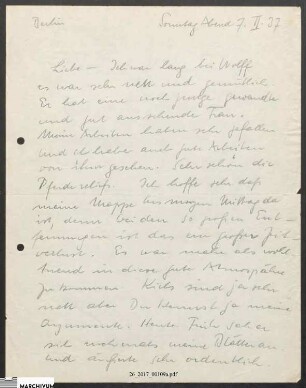 Berlin Sonntag Abend 7. XI 37
Liebe – Ich war lange bei Wolff
es war sehr nett und gemütlich
Er hat eine noch junge gewandte
und gut aussehende Frau.
Meine Arbeiten haben sehr gefallen
und ich habe auch gute Arbeiten
von ihm gesehen. Sehr schön die
Pferderelief. Ich hoffe sehr daß
meine Mappe bis morgen Mittag da
ist, denn bei den so großen Ent-
fernungen ist das ein großer Zeit
verlust. Es war mehr als wohl
tuend in diese gute Atmosphäre
zu kommen. sind ja sehr
nett aber Du kennst ja meine
Argumente. Heute Früh sah er
sich nochmals meine Blätter an
und äußerte sich ordentlich.
MARCHIVUM
26_2017_00109b.pdf